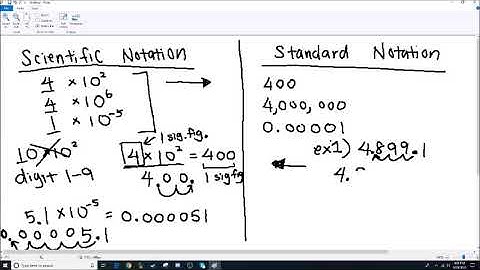 Scientific Notation
4 × 10²
4 × 10⁶
1 × 10⁻⁵
10 × 10²
digit 1-9
1 sig. fig.
4 × 10² = 400
4.0.0.
1 sig fig
5.1 × 10⁻⁵ = 0.000051
0.00005.1
Standard Notation
400
4,000,000
0.00001
ex1) 4.899.1
4.